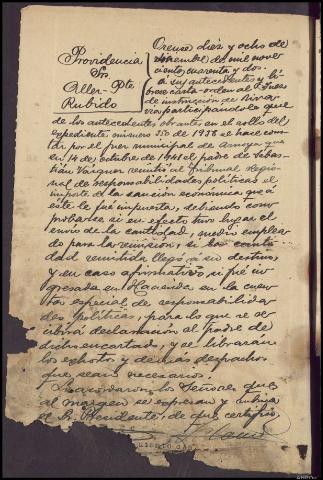 Providencia
Sres.
Aller - Pte
Rubido
Orense diez y ocho de
noviembre de mil nove-
cientos cuarenta y dos.
a sus antecedentes y lí-
brese carta-orden al Juez
de instrucción de
participándole que
de los antecedentes obrantes en el rollo del
expediente número 350 de 1938 se hace cons-
tar por el juez municipal de Arnoya que
en 14 de octubre de 1941 el padre de Sebas-
tián Vázquez remitió al Tribunal Regio-
nal de responsabilidades políticas el
importe de la sanción económica que á
éste le fué impuesta, debiendo com-
probarse si en efecto tuvo lugar el
envío de la cantidad, medio emplea-
do para la remisión, si la canti-
dad remitida llegó á su destino,
y en caso afirmativo si fué in-
gresada en Hacienda en la cuen-
ta especial de responsabilida-
des políticas, para lo que se re-
cibirá declaración al padre de
dicho encartado, y se librarán
los exhortos y demás despachos
que sean necesarios.
Lo acordaron los Señores que
al margen se expresan y rubrica
el Sr. Presidente, de que certifico.